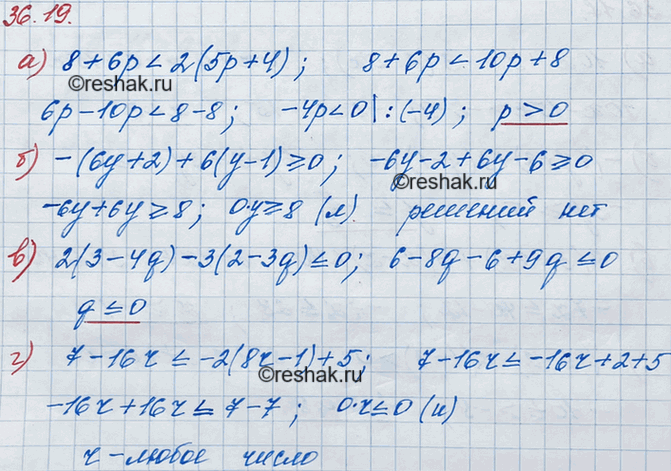 36.19.
а) 8+6p<2(5p+4); 8+6p<10p+8
©reshak.ru
6p-10p<8-8; -4p<0|:(-4); p>0
б) -(6y+2)+6(y-1)≥0; -6y-2+6y-6≥0
©reshak.ru
-6y+6y≥8; 0·y≥8 (л). решений нет
в) 2(3-4q)-3(2-3q)≤0; 6-8q-6+9q≤0
q≤0
г) 7-16r≤-2(8r-1)+5; 7-16r≤-16r+2+5
©reshak.ru
-16r+16r≤7-7; 0·r≤0 (и)
r-любое число